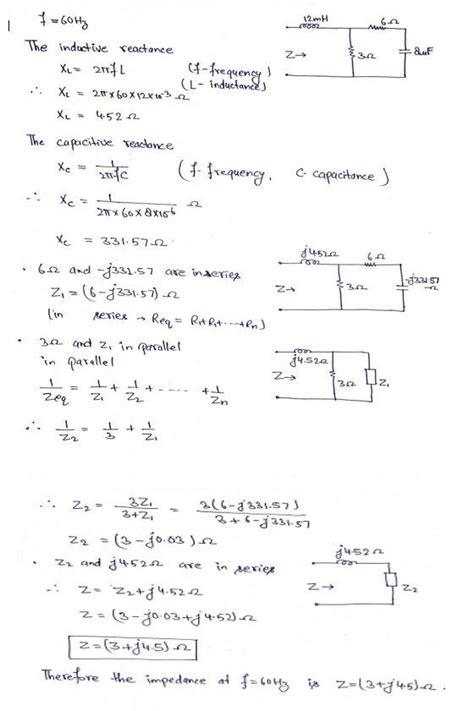 1
f = 60Hz
The inductive reactance
XL = 2πfL (f-frequency)
(L- inductance)
∴ XL = 2π×60×12×10⁻³ Ω
XL = 4.52 Ω
12mH 6Ω
Z→ 3Ω 8uF
The capacitive reactance
Xc = 1/2πfC (f- frequency, C- capacitance)
∴ Xc = 1/2π×60×8×10⁻⁶ Ω
Xc = 331.57Ω
• 6Ω and -j331.57 are in series
Z₁ = (6-j331.57)Ω
(in series → Req = R₁+R₁+ ---- +Rn)
j4.52Ω 6Ω
Z→ 3Ω -j331.57 Ω
• 3Ω and Z₁ in parallel
in parallel
1/Zeq = 1/Z₁ + 1/Z₂ + ----- + 1/Zn
∴ 1/Z₂ = 1/3 + 1/Z₁
j4.52Ω
Z→ 3Ω Z₁
∴ Z₂ = 3Z₁/3+Z₁ = 3(6-j331.57)/3+6-j331.57
Z₂ = (3-j0.03)Ω
• Z₂ and j4.52Ω are in series
∴ Z = Z₂+j4.52Ω
Z = (3-j0.03+j4.52)Ω
Z=(3+j4.5)Ω
j4.52Ω
Z→ Z₂
Therefore the impedance at f=60Hz is Z=(3+j4.5)Ω.